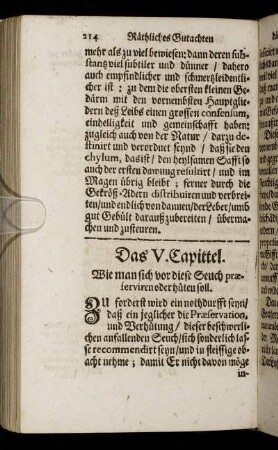 214 Räthliches Gutachten
mehr als zu viel bewiesen; dann deren sub-
stantz viel subtiler und dünner / dahero
auch empfindlicher und schmertzleidentli-
cher ist; zu dem die obersten kleinen Ge-
därm mit den vornembsten Hauptglie-
dern deß Leibs einen grossen consensum,
einhelligkeit und gemeinschafft haben:
zugleich auch von der Natur / darzu de-
stinirt und verordnet seynd / daß sie den
chylum, das ist / den heylsamen Safft so
auch der ersten dawung resultirt / und im
im Magen übrig bleibt; ferner durch die
Gekröß-Adern distribuiren und verbrei-
ten / und endlich von dannen / der Leber / umb
gut Geblüt darauß zubereiten / überma-
chen und zusteuren.
Das V. Capittel.
Wie man sich vor diese Seuch præ-
serviren oder hüten soll.
Zu forderst wird ein nothdurfft seyn /
daß ein jeglicher die Præservation,
und Verhütung / dieser beschwerli-
chen anfallenden Seuch / sich sonderlich las-
se recommendirt seyn / und in fleissige ob-
acht nehme; damit Er nicht davon möge
in-